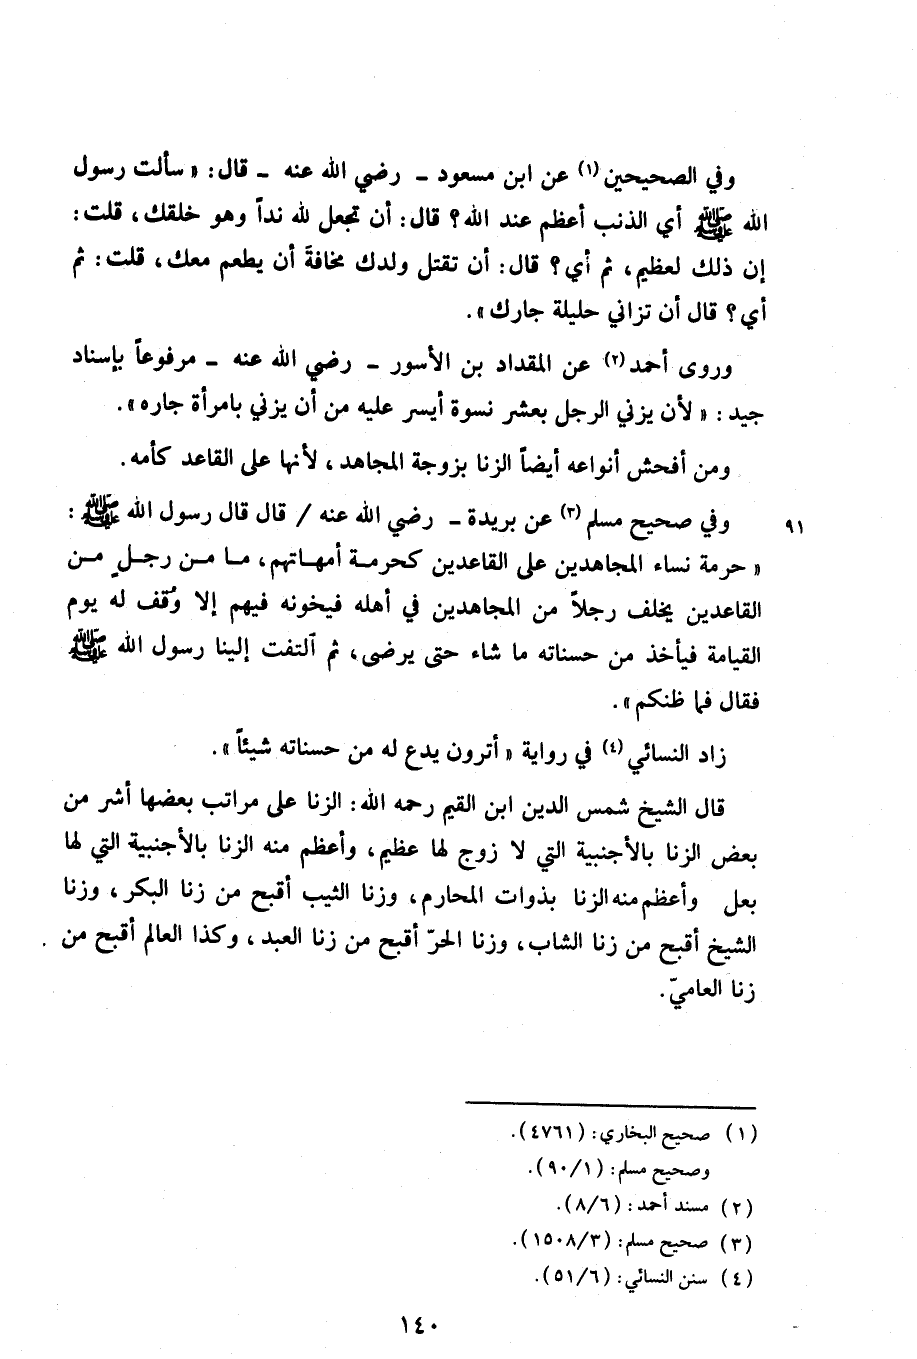 وفي الصحيحين (١) عن ابن مسعود - رضي الله عنه - قال: « سألت رسول
الله ﷺ أي الذنب أعظم عند الله؟ قال: أن تجعل لله نداً وهو خلقك، قلت:
إن ذلك لعظيم، ثم أي؟ قال: أن تقتل ولدك مخافةَ أن يطعم معك، قلت: ثم
أي؟ قال أن تزاني حليلة جارك».
وروى أحمد (٢) عن المقداد بن الأسور - رضي الله عنه - مرفوعاً بإسناد
جيد: « لأن يزني الرجل بعشر نسوة أيسر عليه من أن يزني بامرأة جاره».
ومن أفحش أنواعه أيضاً الزنا بزوجة المجاهد، لأنها على القاعد كأمه.
٩١ وفي صحيح مسلم (٣) عن بريدة - رضي الله عنه / قال قال رسول الله ﷺ:
« حرمة نساء المجاهدين على القاعدين كحرمة أمهاتهم، ما من رجلٍ من
القاعدين يخلف رجلاً من المجاهدين في أهله فيخونه فيهم إلا وُقف له يوم
القيامة فيأخذ من حسناته ما شاء حتى يرضى، ثم ٱلتفت إلينا رسول الله ﷺ
فقال فما ظنكم».
زاد النسائي (٤) في رواية « أترون يدع له من حسناته شيئاً».
قال الشيخ شمس الدين ابن القيم رحمه الله: الزنا على مراتب بعضها أشر من
بعض الزنا بالأجنبية التي لا زوج لها عظيم، وأعظم منه الزنا بالأجنبية التي لها
بعل وأعظم منه الزنا بذوات المحارم، وزنا الثيب أقبح من زنا البكر، وزنا
الشيخ أقبح من زنا الشاب، وزنا الحرّ أقبح من زنا العبد، وكذا العالم أقبح من
زنا العاميّ.
(١) صحيح البخاري: (٤٧٦١).
وصحيح مسلم: (٩٠/١).
(٢) مسند أحمد: (٨/٦).
(٣) صحيح مسلم: (١٥٠٨/٣).
(٤) سنن النسائي: (٥١/٦).
١٤٠